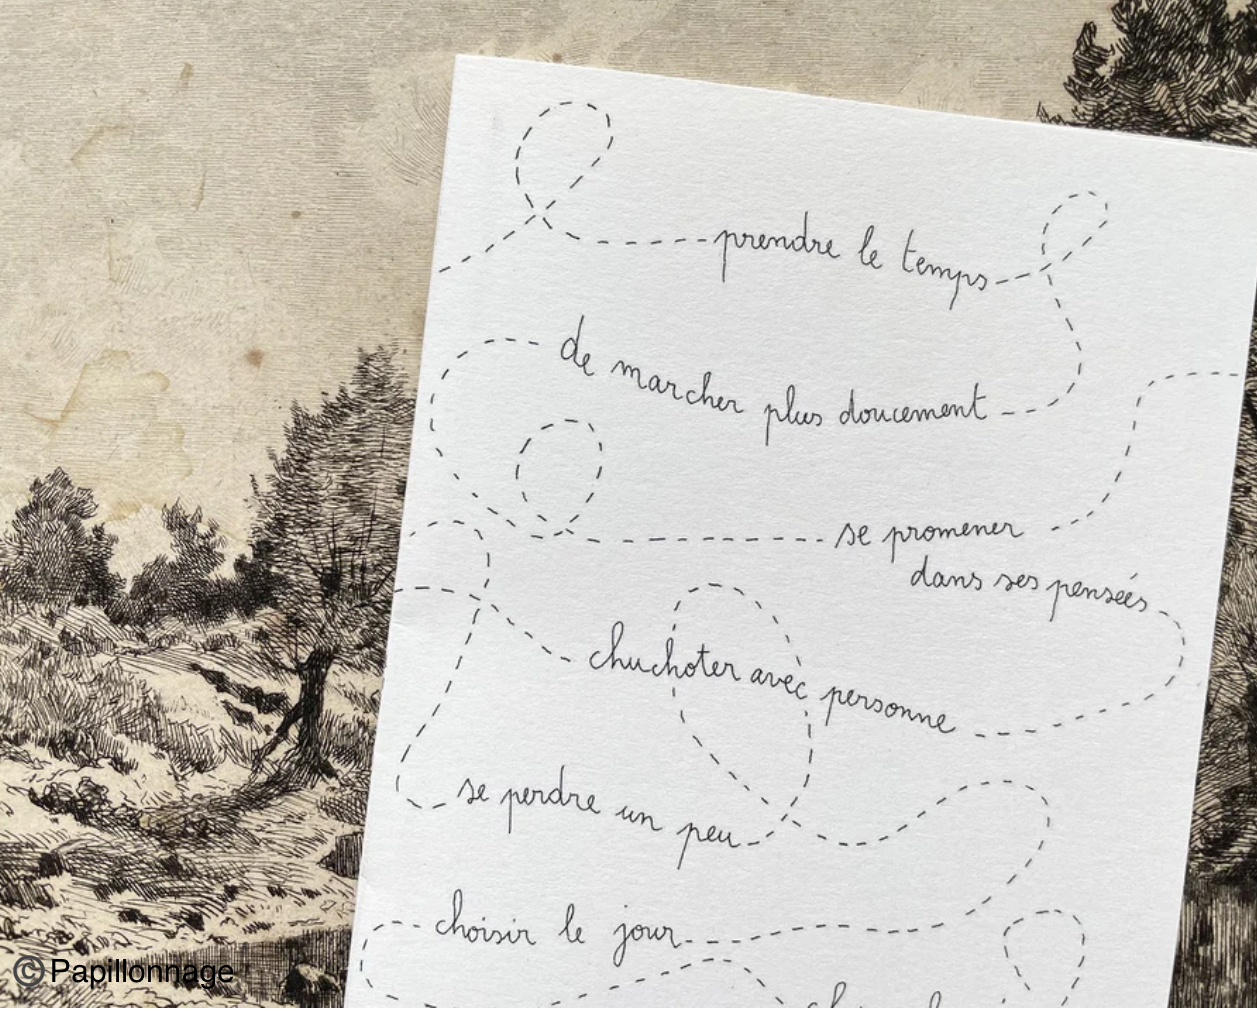 prendre le temps
de marcher plus doucement
se promener
dans ses pensées
chuchoter avec personne
se perdre un peu
choisir le jour
© Papillonnage